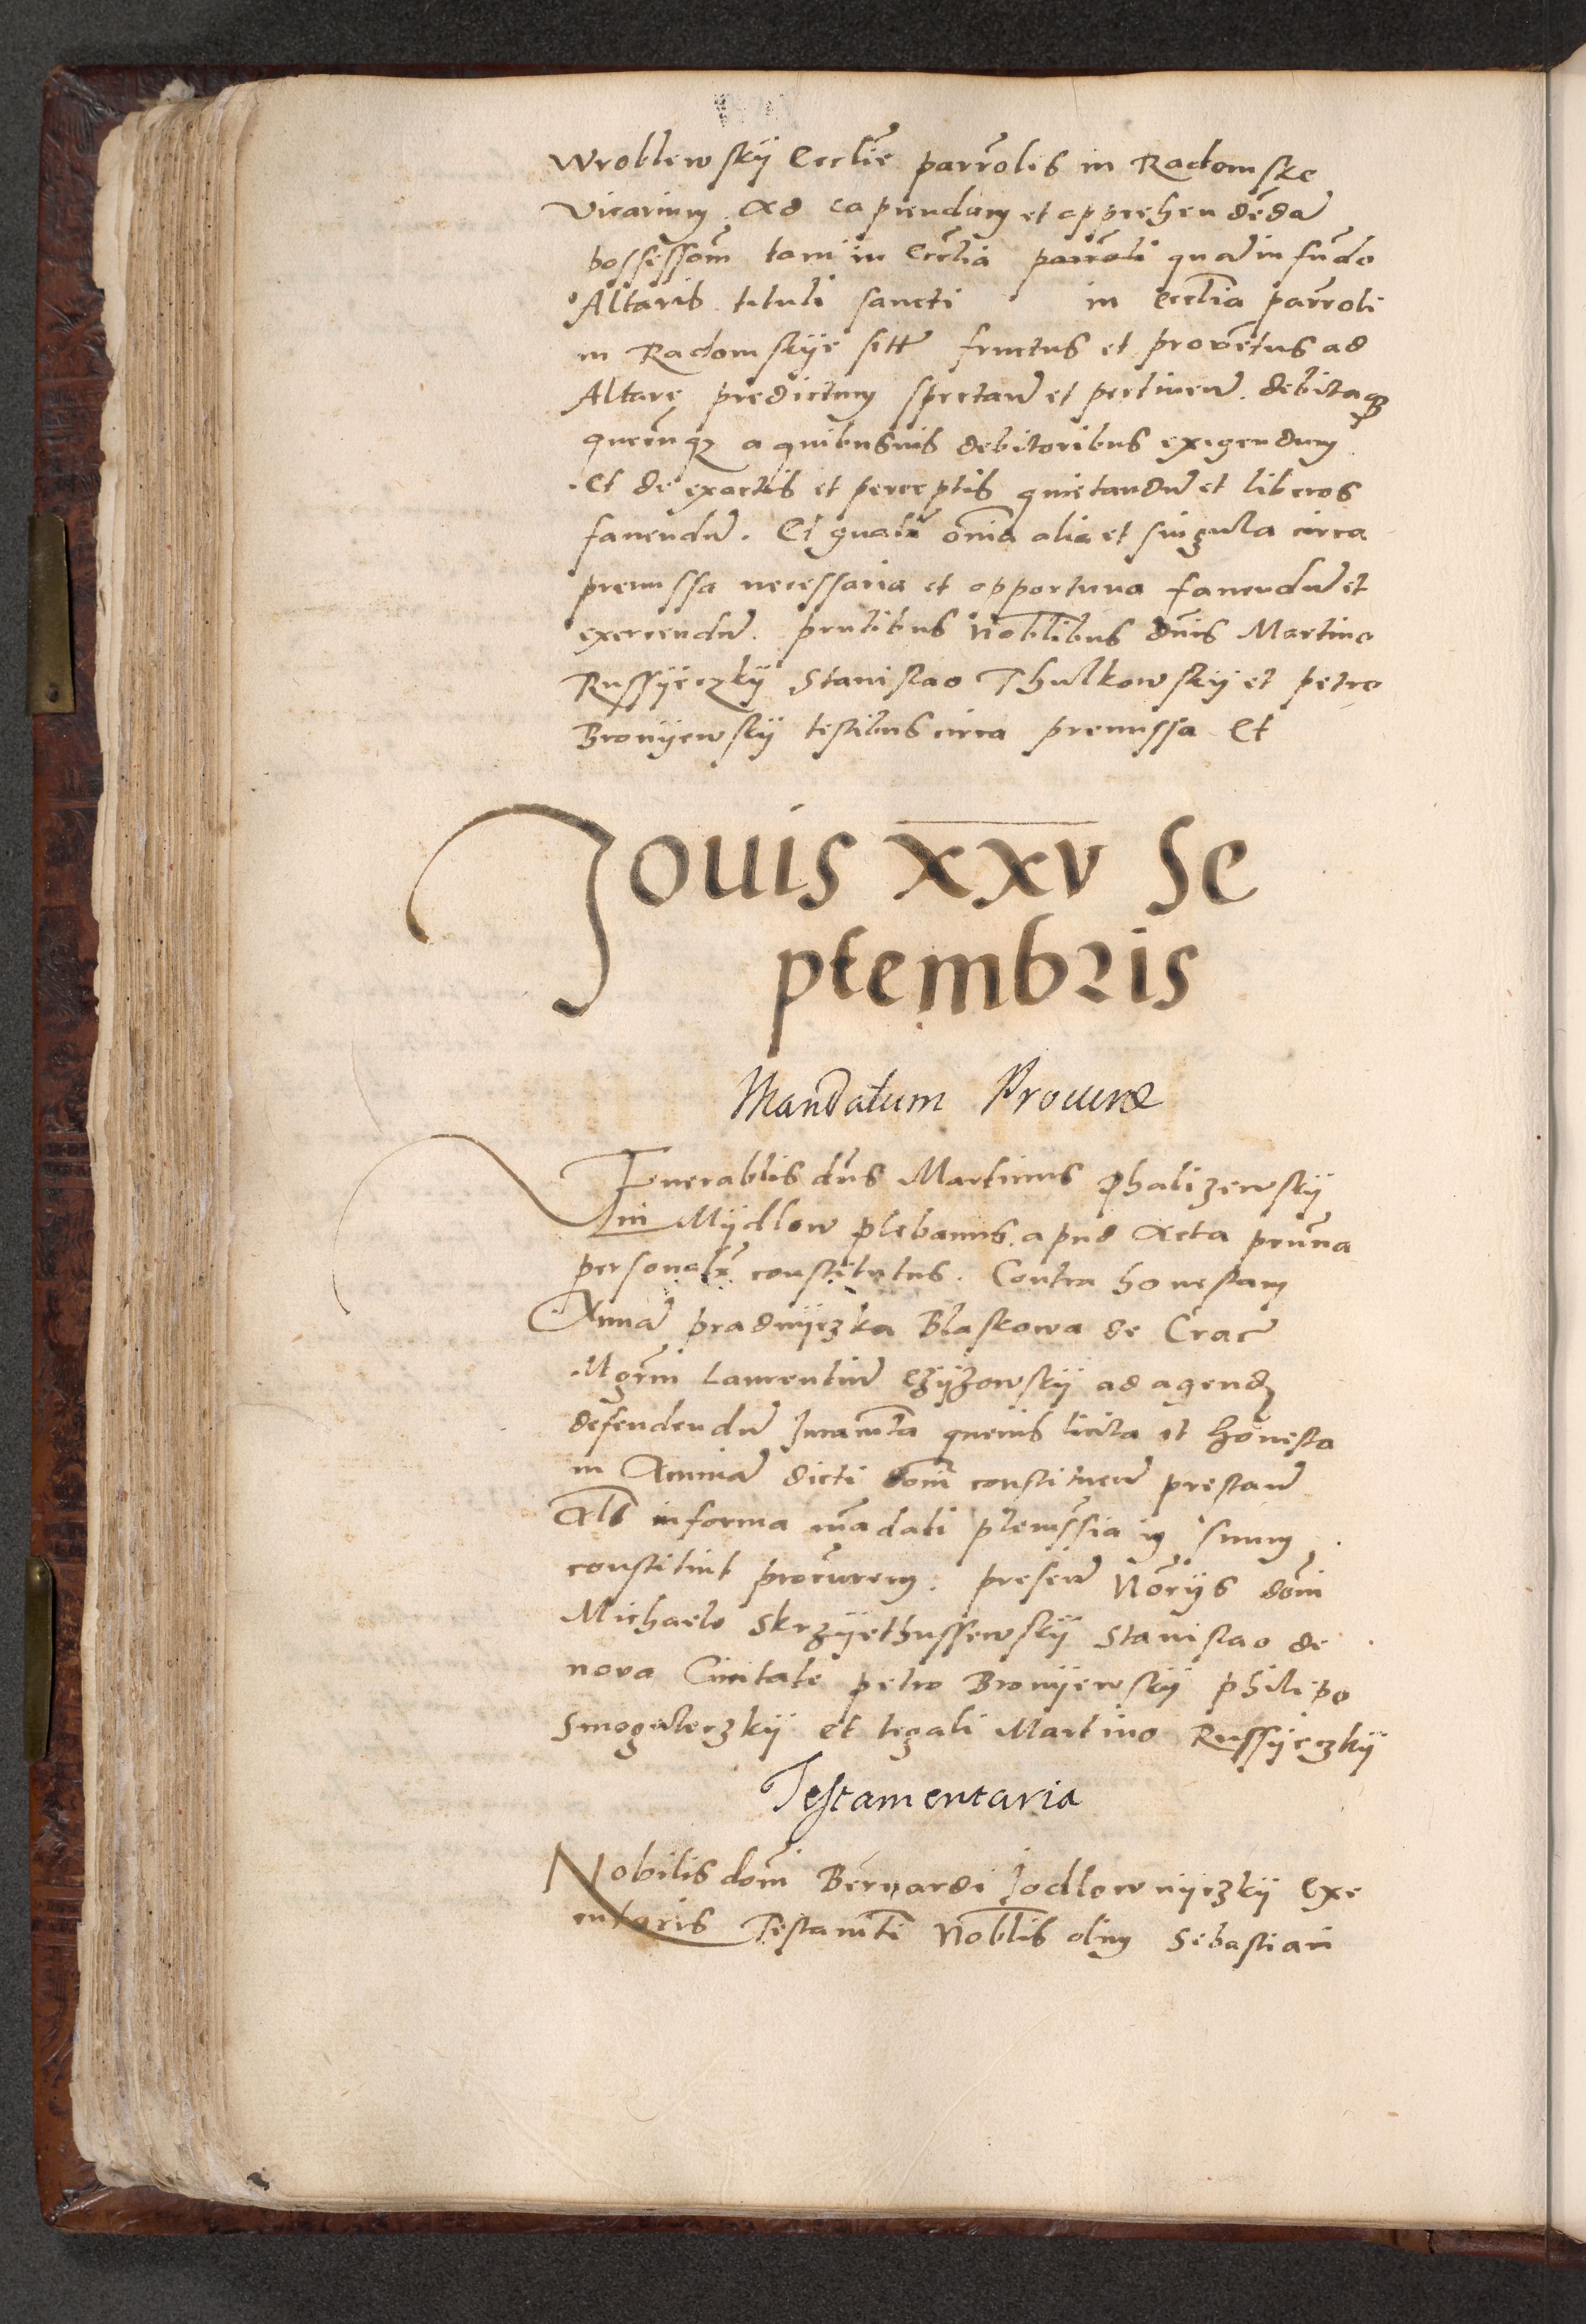 Wroblewskÿ Ecclie parrolis in Radomske
Vicarium Ad capiendam et apprehendēdā
possessom̄ tam in Ecclia parroli quā in fūdo
Altaris tituli sancti in Ecclia parroli
in Radomskÿe sitū fructus et proventus ad
Altare predictum spectan̄ et pertinen̄ debitaqȝ
quecūqȝ a quibusuis debitoribus exigendum
Et de exactis et perceptis quietandū et liberos
faciendū. Et gnalr̄ om̄ia alia et singula circa
premissa necessaria et opportuna faciendū et
exercendū. pn̄tibus Noblibus dnīs Martino
Russÿeczkÿ Stanislao Thulkowskÿ et petro
Bronÿewskÿ testibus circa premissa Et
Jouis xxv Se
ptembris
Mandatum Procurae
Venerablis dn̄s Martinus Phalizewskÿ
in Mÿdlow plebanus apud Acta pn̄tia
personalr̄ constitutus. Contra honestam
Annā pradnÿczka Blaskowa de Crac̄
Mgrm̄ Laurentiū Czÿzowskÿ ad agendȝ
defendendū Juramta quevis licita et honesta
in Animā dicti dom̄ constituen̄ prestan̄
Als in forma mādati plenissia in suum
constituit procurem. presen̄ Norÿs dom̄
Michaele Skrzÿethussewskÿ Stanislao de
nova Civitate petro Bronÿewskÿ philipo
Smoguleczkÿ et legali Martino Russÿeczkÿ
Testamentaria
Nobilis dom̄ Bernardi Jodlownÿczkÿ Exe
cutoris Testamti Noblis olim Sebastiani